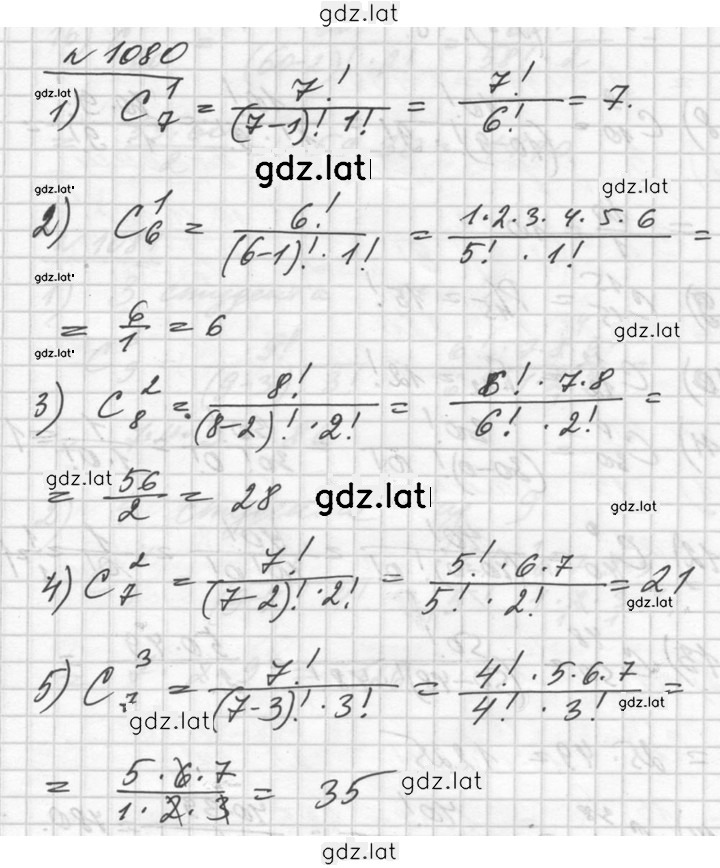 gdz.lat
№ 1080
gdz.lat
1) C₇¹ = 7! / ((7-1)! 1!) = 7! / 6! = 7.
gdz.lat
gdz.lat gdz.lat
2) C₆¹ = 6! / ((6-1)! · 1!) = (1·2·3·4·5·6) / (5! · 1!) =
gdz.lat
= 6/1 = 6 gdz.lat
gdz.lat
3) C₈² = 8! / ((8-2)! · 2!) = (6! · 7·8) / (6! · 2!) =
gdz.lat
= 56/2 = 28 gdz.lat gdz.lat
4) C₇² = 7! / ((7-2)! · 2!) = (5! · 6·7) / (5! · 2!) = 21
gdz.lat
5) C₇³ = 7! / ((7-3)! · 3!) = (4! · 5·6·7) / (4! · 3!) =
gdz.lat gdz.lat
= (5·6·7) / (1·2·3) = 35 gdz.lat
gdz.lat